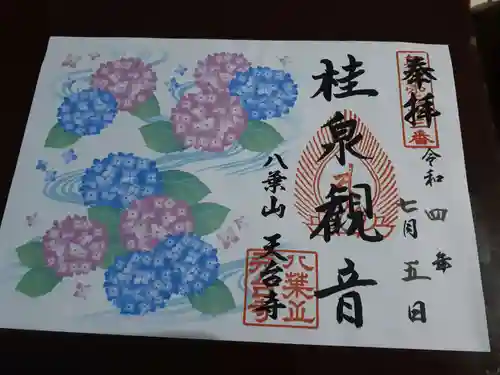 奉拝
令和四年
七月五日
桂泉観音
八葉山 天台寺